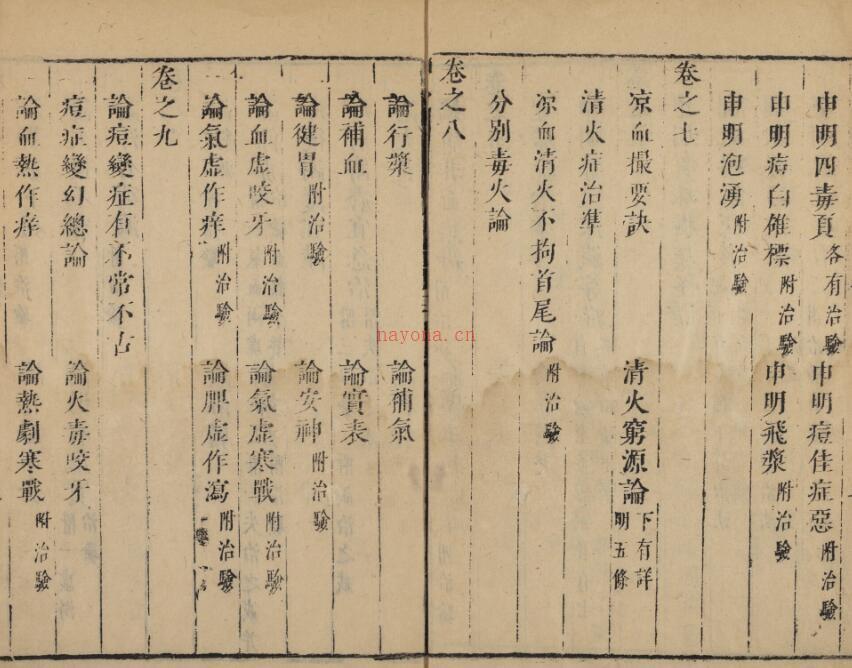 申明四毒頁各有治驗 申明痘佳症惡附治驗
申明痘白傕標附治驗 申明飛漿附治驗
申明泡湧附治驗
卷之七
凉血撮要訣 清火窮源論下有詳明五條
清火症治凖
凉血清火不拘首尾論附治驗
分別毒火論
卷之八
論行漿 論補氣
論補血 論實表
論健胃附治驗 論安神附治驗
論血虛咬牙附治驗 論氣虛寒戰附治驗
論氣虛作痒附治驗 論脾虛作瀉附治驗
卷之九
論痘變症有不常不占
痘症變幻總論 論火毒咬牙
論血熱作痒 論熱劇寒戰附治驗
nayona.cn